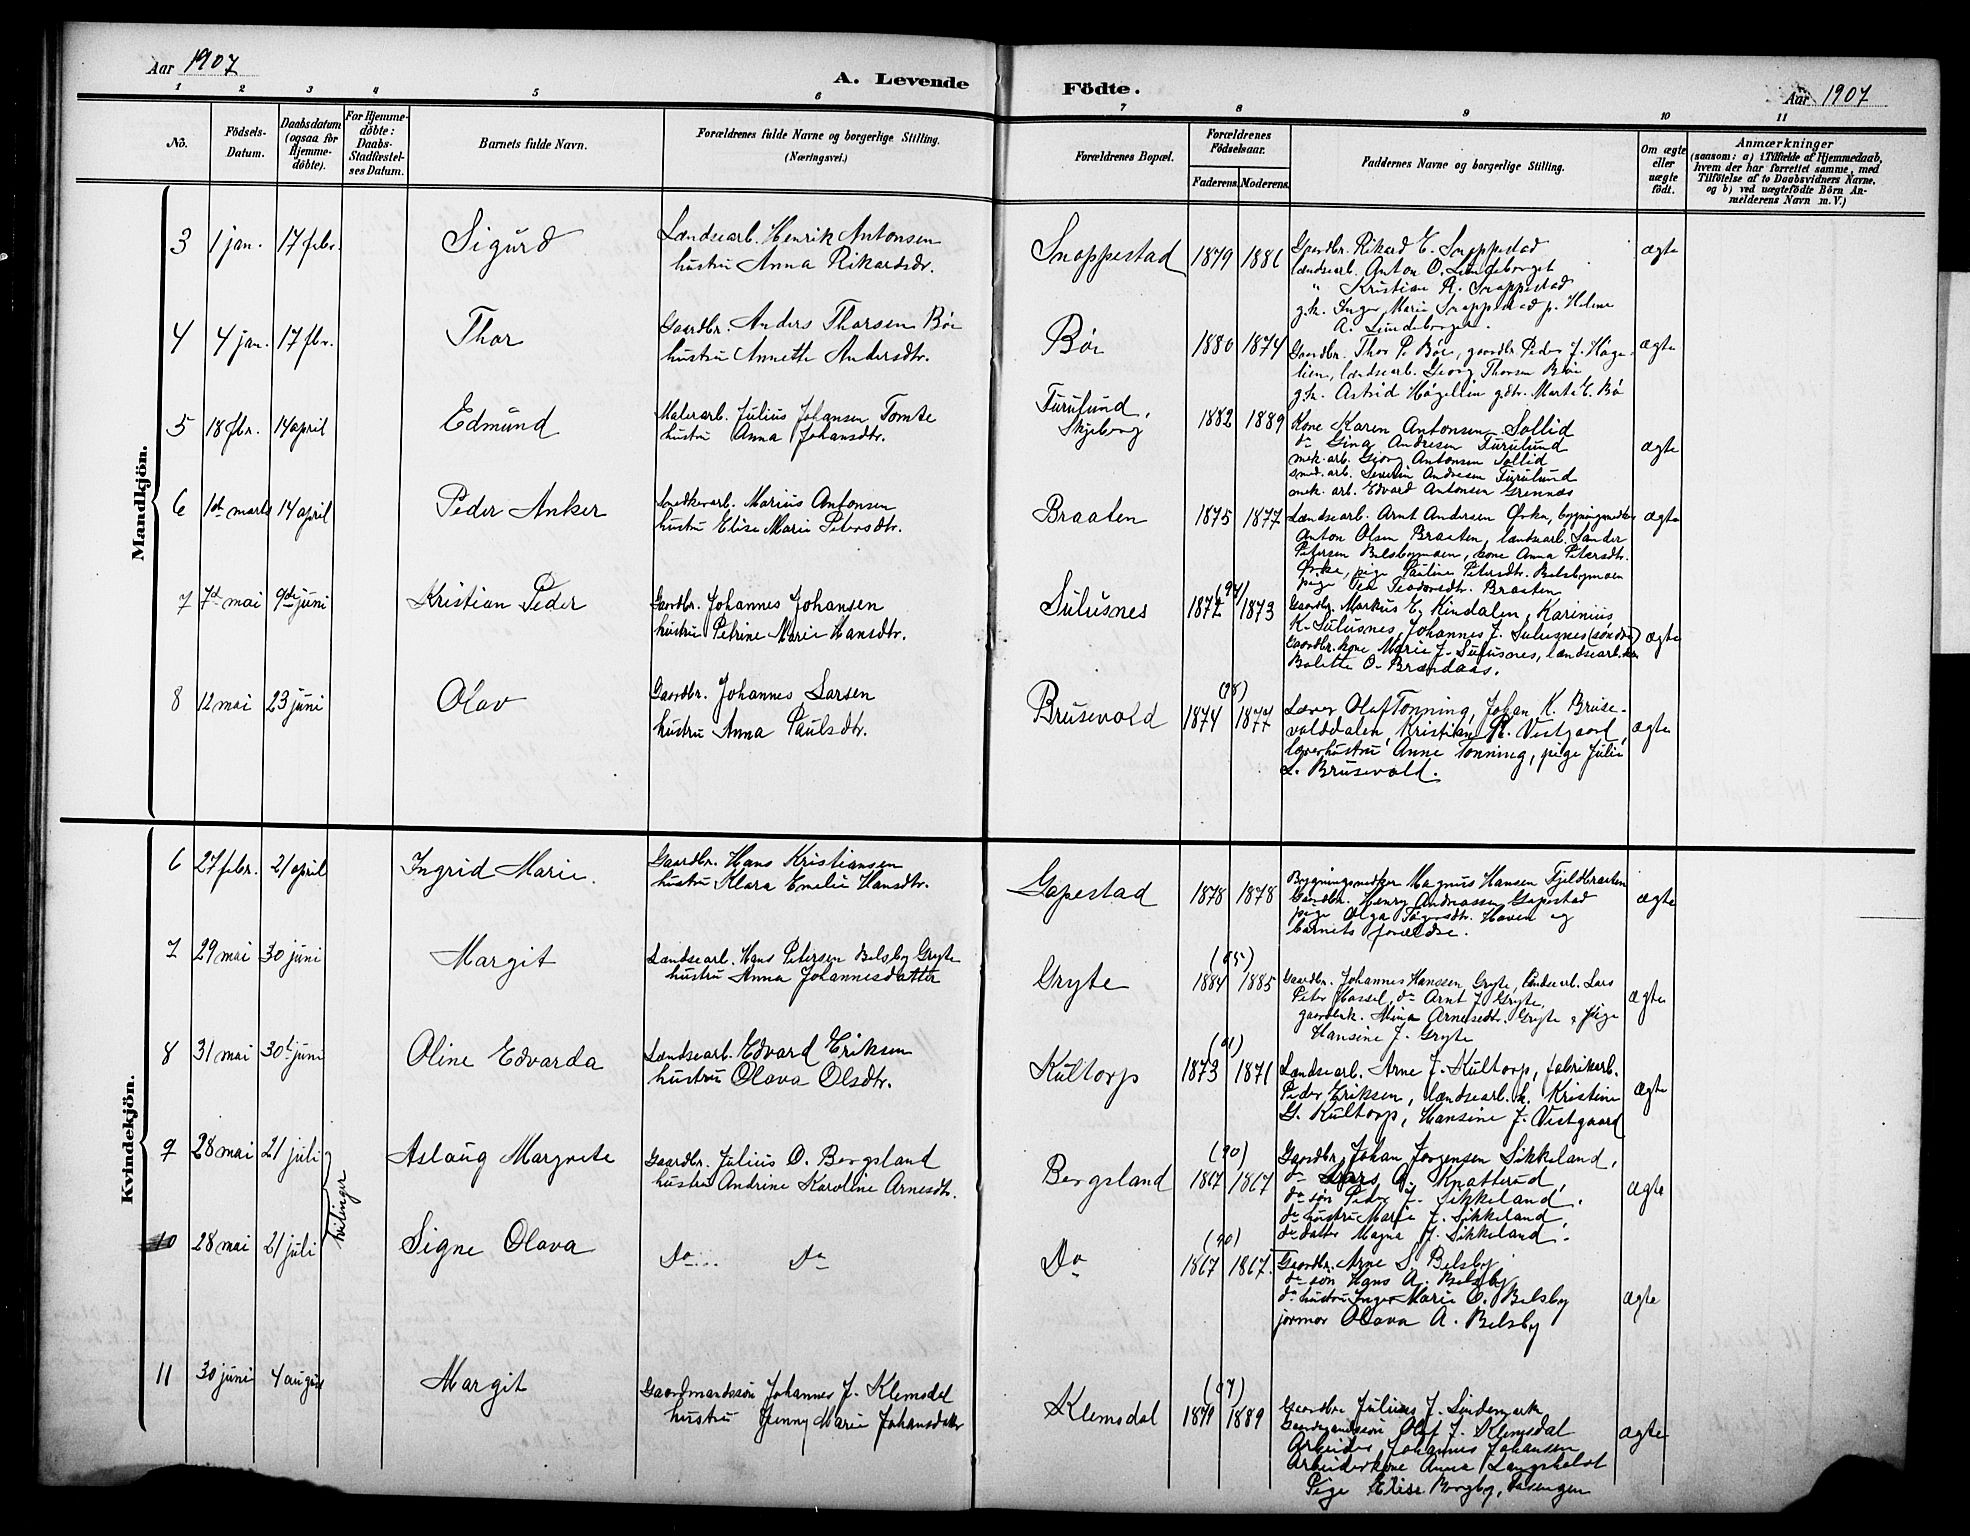 Aar 1907
A. Levende Födte.
Aar 1907
1 2 3 4 5 6 7 8 9 10 11
No.
Födsels-Datum.
Daabsdatum (ogsaa for Hjemme-döbte).
For Hjemme-döbte: Daabs-Stadfæstel-ses Datum.
Barnets fulde Navn.
Forældrenes fulde Navne og borgerlige Stilling.
(Næringsvei.)
Forældrenes Bopæl.
Forældrenes Födselsaar.
Faderens. Moderens.
Faddernes Navne og borgerlige Stilling.
Om ægte eller uægte födt.
Anmærkninger
(saasom: a) i Tilfælde af Hjemmedaab, hvem der har forrettet samme, med Tilföielse af to Daabsvidners Navne, og b) ved uægtefödte Börn An-melderens Navn m. V.)
Mandkjön.
3 1 jan. 17 febr. Sigurd
Landsearb. Henrik Antonsen
hustru Anna Rikardsdr.
Snoppestad 1879 1881
Gaardbr. Rikard E. Snoppestad
landsearb. Anton O. Lindeborget
" Kristian R. Snoppestad
g.k. Inger Marie Snoppestad p. Helene
A. Lindeborget.
ægte
4 4 jan. 17 fbr. Thor
Gaardbr. Anders Thorsen Bøe
hustru Annette Andersdtr.
Bøe 1880 1874
Gaardbr. Thor P. Böe, gaardbr. Peder J. Høge-
lien, landsearb. Georg Thorsen Bøe
g.k. Astrid Høgelien gdtr. Marte E. Bø
ægte
5 18 fbr. 14 april Edmund
Malerarb. Julius Johansen Tomte
hustru Anna Johansdtr.
Furulund, Skjeborg 1882 1889
Kone Karen Antonsen Sollid
do Gina Andresen Furulund
mek. arb. Georg Antonsen Sollid
smed. arb. Severin Andresen Furulund
mek. arb. Edvard Antonsen Grennæs
ægte
6 1ste marts 14 april Peder Anker
Snedkerarb. Marius Antonsen
hustru Elise Marie Petersdtr.
Braaten 1875 1877
Landsearb. Arnt Andersen Ørke, bygningssnedker
Anton Olsen Braaten, landsearb. Sander
Petersen Belsbymoen, kone Anna Petersdtr.
Ørke, pige Pauline Petersdtr. Belsbymoen
pige Thea Teodorsdtr. Braaten
ægte
7 7de mai 9de juni Kristian Peder
Gaardbr. Johannes Johansen
hustru Petrine Marie Hansdtr.
Sulusnes 1872 (97) 1873
Gaardbr. Markus E. Kindalen, Karinius
K. Sulusnes, Johannes J. Sulusnes (søndre)
Gaardbr. kone Marie J. Sulusnes, landsearb. kone
Bolette O. Brændaas.
ægte
8 12 mai 23 juni Olav
Gaardbr. Johannes Larsen
hustru Anna Paulsdtr.
Brusevold 1874 (98) 1877
Lærer Olaf Tonning, Johan K. Bruse-
volddalen, Kristian R. Vestgaard,
lærerhustru Anne Tonning, pige Julie
L. Brusevold.
ægte
Kvindekjön.
6 27 febr. 21 april Ingrid Marie.
Gaardbr. Hans Kristiansen
hustru Klara Emelie Hansdtr.
Gapestad 1878 1878
Bygningssnedker Magnus Hansen Fjeldbraaten
Gaardbr. Henry Andreassen Gapestad
pige Olga Tægersdtr. Haven og
barnets forældre.
ægte
7 29 mai 30 juni Margit
Landsearb. Hans Petersen Belsby Gryte
hustru Anna Johannesdatter
Gryte 1884 (05) 1885
Gaardbr. Johannes Hanssen Gryte, landsearb. Lars
Peter Hassel, do Arnt J. Gryte,
gaardbrk. Mina Arnesdtr. Gryte, pige
Hansine J. Gryte
ægte
8 31 mai 30te juni Oline Edvarda
Landsearb. Edvard Eriksen
hustru Olava Olsdtr.
Kultorp 1873 (91) 1871
Landsearb. Arne J. Kultorp, fabrikarb.
Peder Eriksen, landsearb. k. Kristine
G. Kultorp, Hansine J. Vestgaard
ægte
9 28 mai 21 juli Aslaug Margrete
tvilinger
Gaardbr. Julius O. Bergsland
hustru Andrine Karoline Arnesdtr.
Bergsland 1867 (90) 1867
Gaardbr. Johan Jørgensen Sikkeland,
do Lars O. Knatterud,
do søn Peder J. Sikkeland.
do hustru Marie J. Sikkeland,
do datter Magna J. Sikkeland.
ægte
10 28 mai 21 juli Signe Olava
Do Do
Do 1867 (90) 1867.
Gaardbr. Arne S. Belsby
do søn Hans A. Belsby
do hustru Inger Marie O. Belsby
jormor Olava A. Belsby
ægte
11 30 juni 4 august Margit
Gaardmandssøn Johannes J. Klemsdal
hustru Jenny Marie Johansdatter
Klemsdal 1879 (07) 1889
Gaardbr. Julius J. Lindemark
Gaardmandssøn Olaf J. Klemsdal
Arbeider Johannes Johansen
Arbeiderkone Anna Langholdt
Pige Elise Borgby, Aasengen
ægte